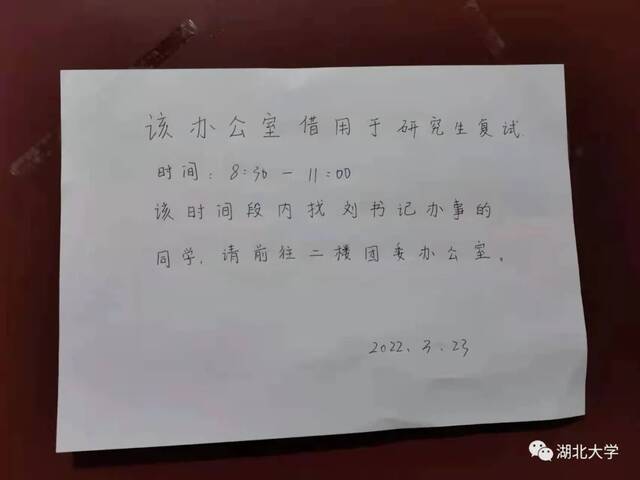 该办公室借用于研究生复试
时间：8:30—11:00
该时间段内找刘书记办事的
同学，请前往二楼团委办公室。
2022.3.23
湖北大学